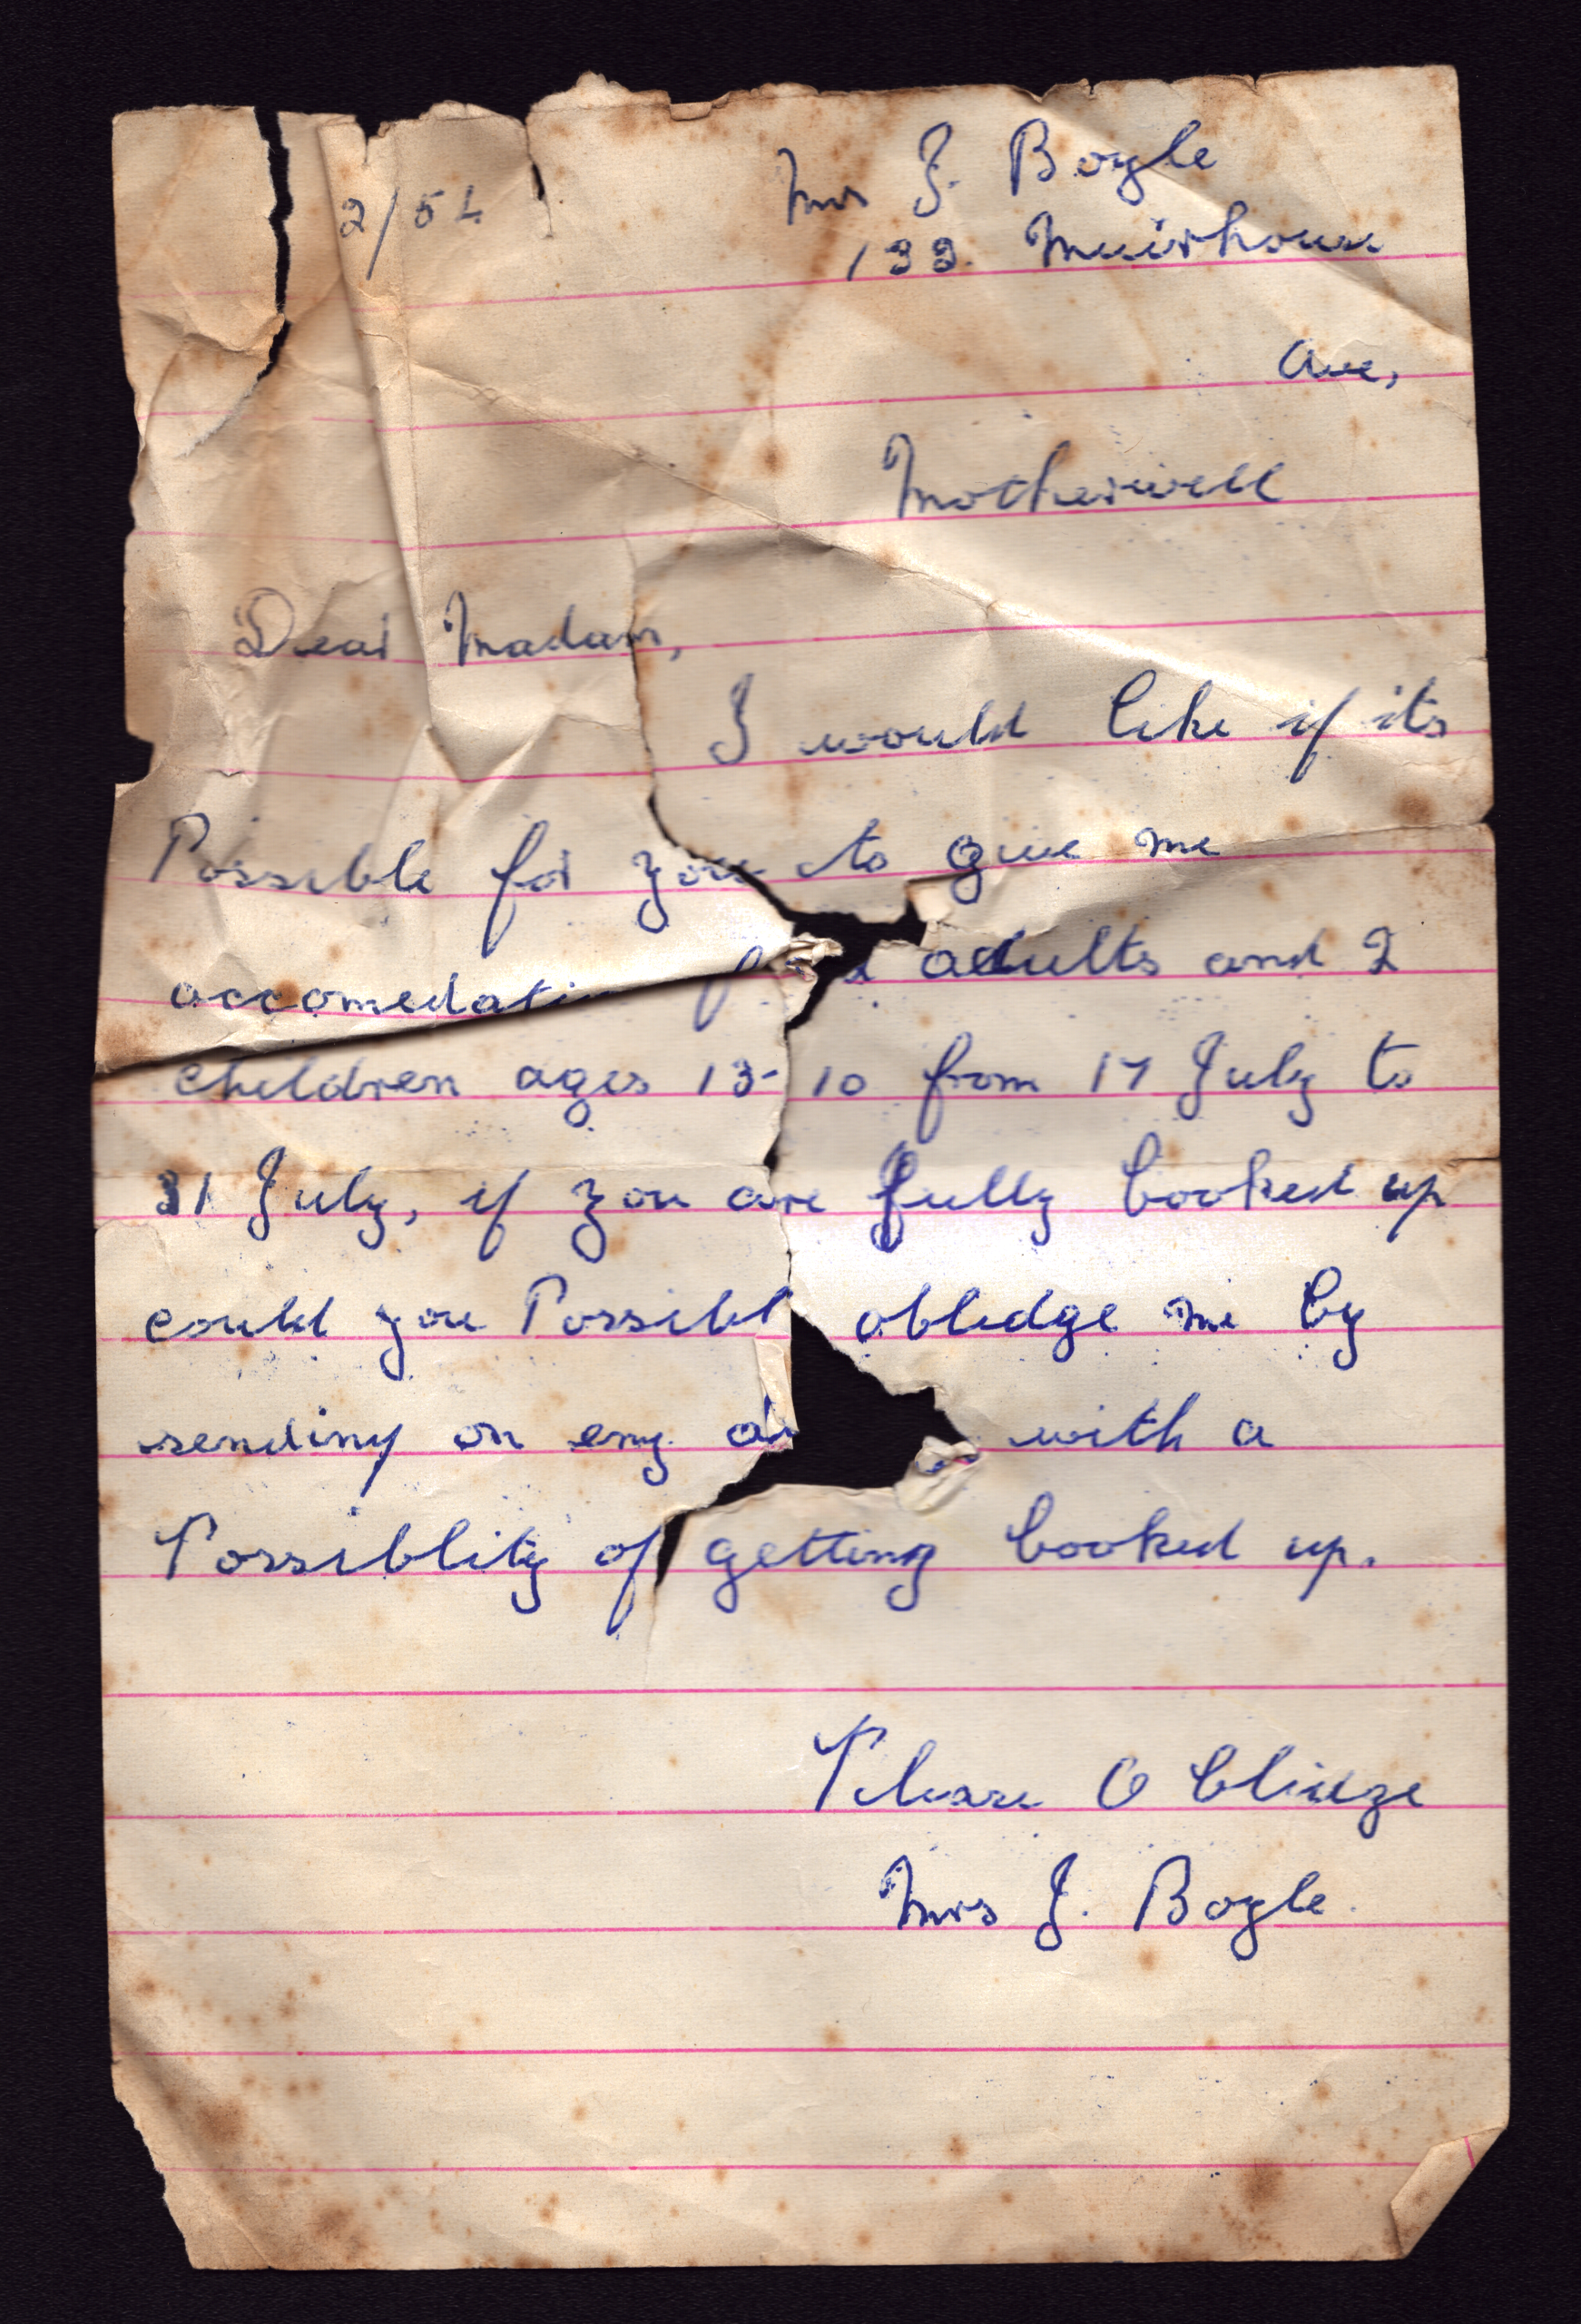 2/54
Mrs J. Boyle
133 Muirhouse
Ave,
Motherwell
Dear Madam,
I would like if its
Possible for you to give me
accomedation 2 adults and 2
children ages 13-10 from 17 July to
31 July, if you are fully booked up
could you Possibl obledge me by
sending on eny with a
Possiblity of getting booked up.
Please Obliedge
Mrs J. Boyle.